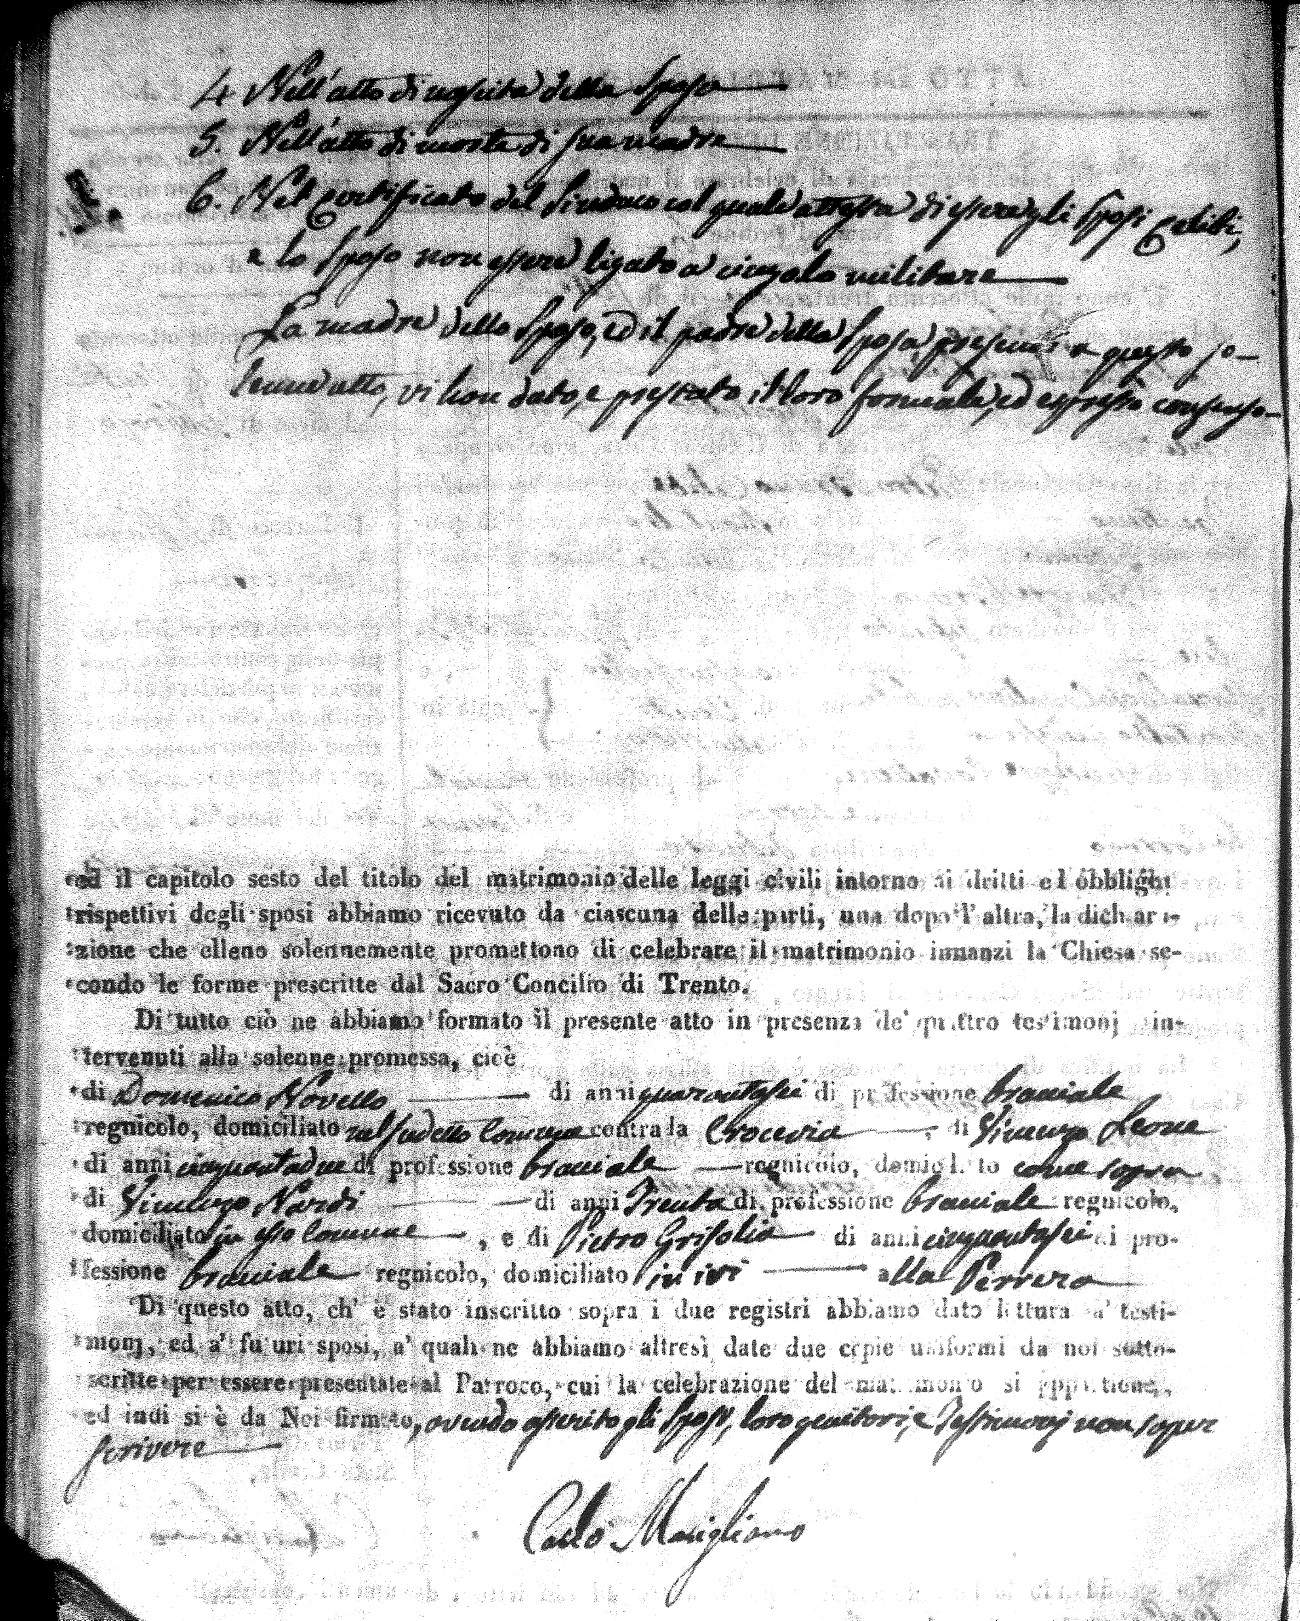 4. Nell'atto di nascita della Sposa
5. Nell'atto di morte di sua madre
6. Nel certificato del Sindaco col quale attesta di essere gli Sposi celibi,
e lo Sposo non essere ligato a cingolo militare
La madre dello Sposo, ed il padre della Sposa, presenti a questo so-
lenne atto, vi han dato, e prestato il loro formale, ed espresso consenso-
ed il capitolo sesto del titolo del matrimonio delle leggi civili intorno ai dritti e l obblighi
rispettivi degli sposi abbiamo ricevuto da ciascuna delle parti, una dopo l' altra, la dichiara-
zione che elleno solennemente promettono di celebrare il matrimonio innanzi la Chiesa se-
condo le forme prescritte dal Sacro Concilio di Trento.
Di tutto ciò ne abbiamo formato il presente atto in presenza de' quattro testimonj in-
tervenuti alla solenne promessa, cioè
di Domenico Novello di anni quarantasei di professione bracciale
regnicolo, domiciliato nel sudetto Comune contrala Crocevia, di Vincenzo Leone
di anni cinquantadue di professione bracciale regnicolo, domiciliato come sopra
di Vincenzo Nardi di anni Trenta di professione bracciale regnicolo,
domiciliato in esso Comune, e di Pietro Grisolia di anni cinquantasei di pro-
fessione bracciale regnicolo, domiciliato in ivi alla Perrera
Di questo atto, ch' è stato inscritto sopra i due registri abbiamo dato lettura a' testi-
monj, ed a' futuri sposi, a' quali ne abbiamo altresì date due copie uniformi da noi sotto-
scritte per essere presentate al Parroco, cui la celebrazione del matrimonio si appartiene,
ed indi si è da Noi firmato, avendo asserito gli Sposi, loro genitori, e Testimonj non saper
scrivere
Carlo Marigliano